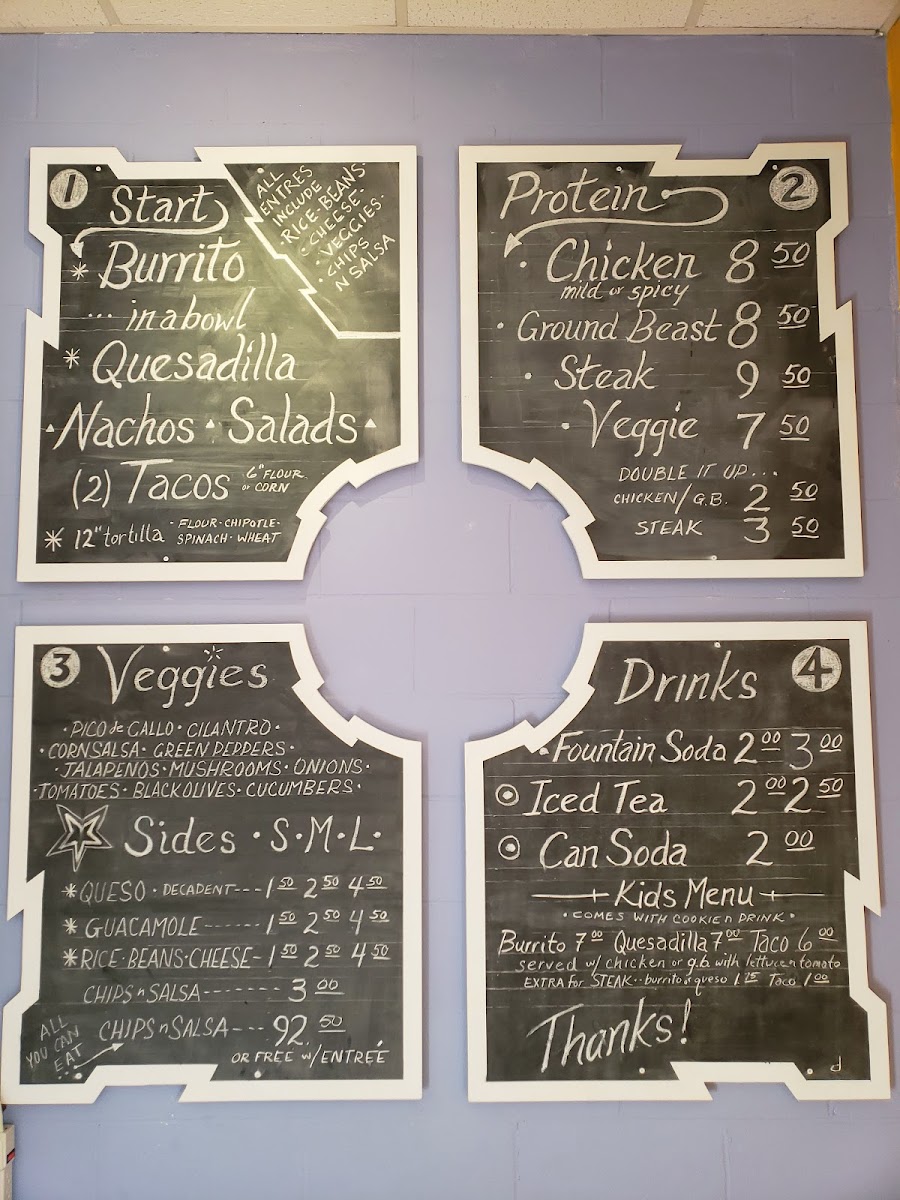 1
Start
* Burrito
... in a bowl
* Quesadilla
Nachos · Salads
(2) Tacos 6" FLOUR
or CORN
* 12" tortilla · FLOUR · CHIPOTLE ·
SPINACH · WHEAT
ALL
ENTRES
INCLUDE
· RICE · BEANS ·
· CHEESE ·
· VEGGIES ·
· CHIPS
N SALSA
Protein 2
· Chicken 8 50
mild or spicy
· Ground Beast 8 50
· Steak 9 50
· Veggie 7 50
DOUBLE IT UP...
CHICKEN/G.B. 2 50
STEAK 3 50
3 Veggies
· PICO de GALLO · CILANTRO ·
· CORN SALSA · GREEN PEPPERS ·
· JALAPENOS · MUSHROOMS · ONIONS ·
· TOMATOES · BLACK OLIVES · CUCUMBERS ·
Sides · S · M · L ·
* QUESO · DECADENT --- 1 50 2 50 4 50
* GUACAMOLE ------- 1 50 2 50 4 50
* RICE · BEANS · CHEESE - 1 50 2 50 4 50
CHIPS n SALSA -------- 3 00
CHIPS n SALSA ---- 92 50
OR FREE w/ENTREÉ
ALL
YOU CAN
EAT
Drinks 4
· Fountain Soda 2 00 3 00
Iced Tea 2 00 2 50
Can Soda 2 00
Kids Menu
· COMES WITH COOKIE n DRINK ·
Burrito 7 00 Quesadilla 7 00 Taco 6 00
served w/ chicken or g.b. with lettuce n tomato
EXTRA for STEAK -- burrito or queso 1 75 Taco 1 00
Thanks!
d